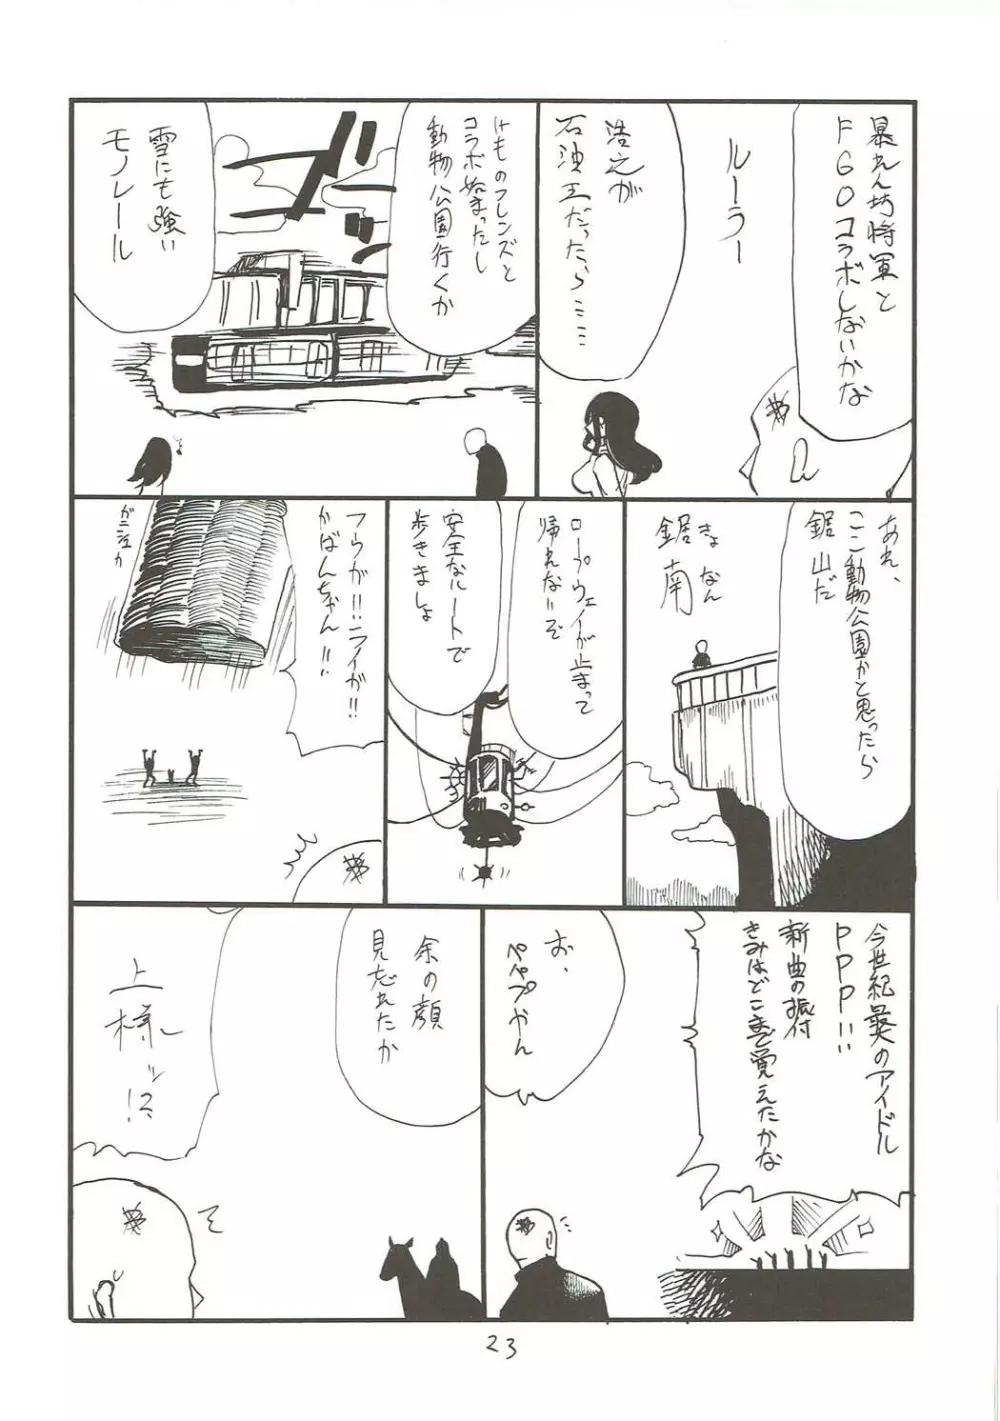 暴れん坊将軍と
FGOコラボしないかな
ルーラー
浩之が
石油王だったら……
けものフレンズと
コラボ始まったし
動物公園行くか
雪にも強い
モノレール
あれ、
ここ動物公園かと思ったら
鋸山だ
きょなん
鋸南
ロープウェイが止まって
帰れないぞ
安全なルートで
歩きましょ
フウが!!ライが!!
かばんちゃん!!
ガニュカ
今世紀最後のアイドル
PPP!!
新曲の振付
きみはどこまで覚えたかな
お、
ペペプやん
余の顔
見忘れたか
上様ッ!?
23